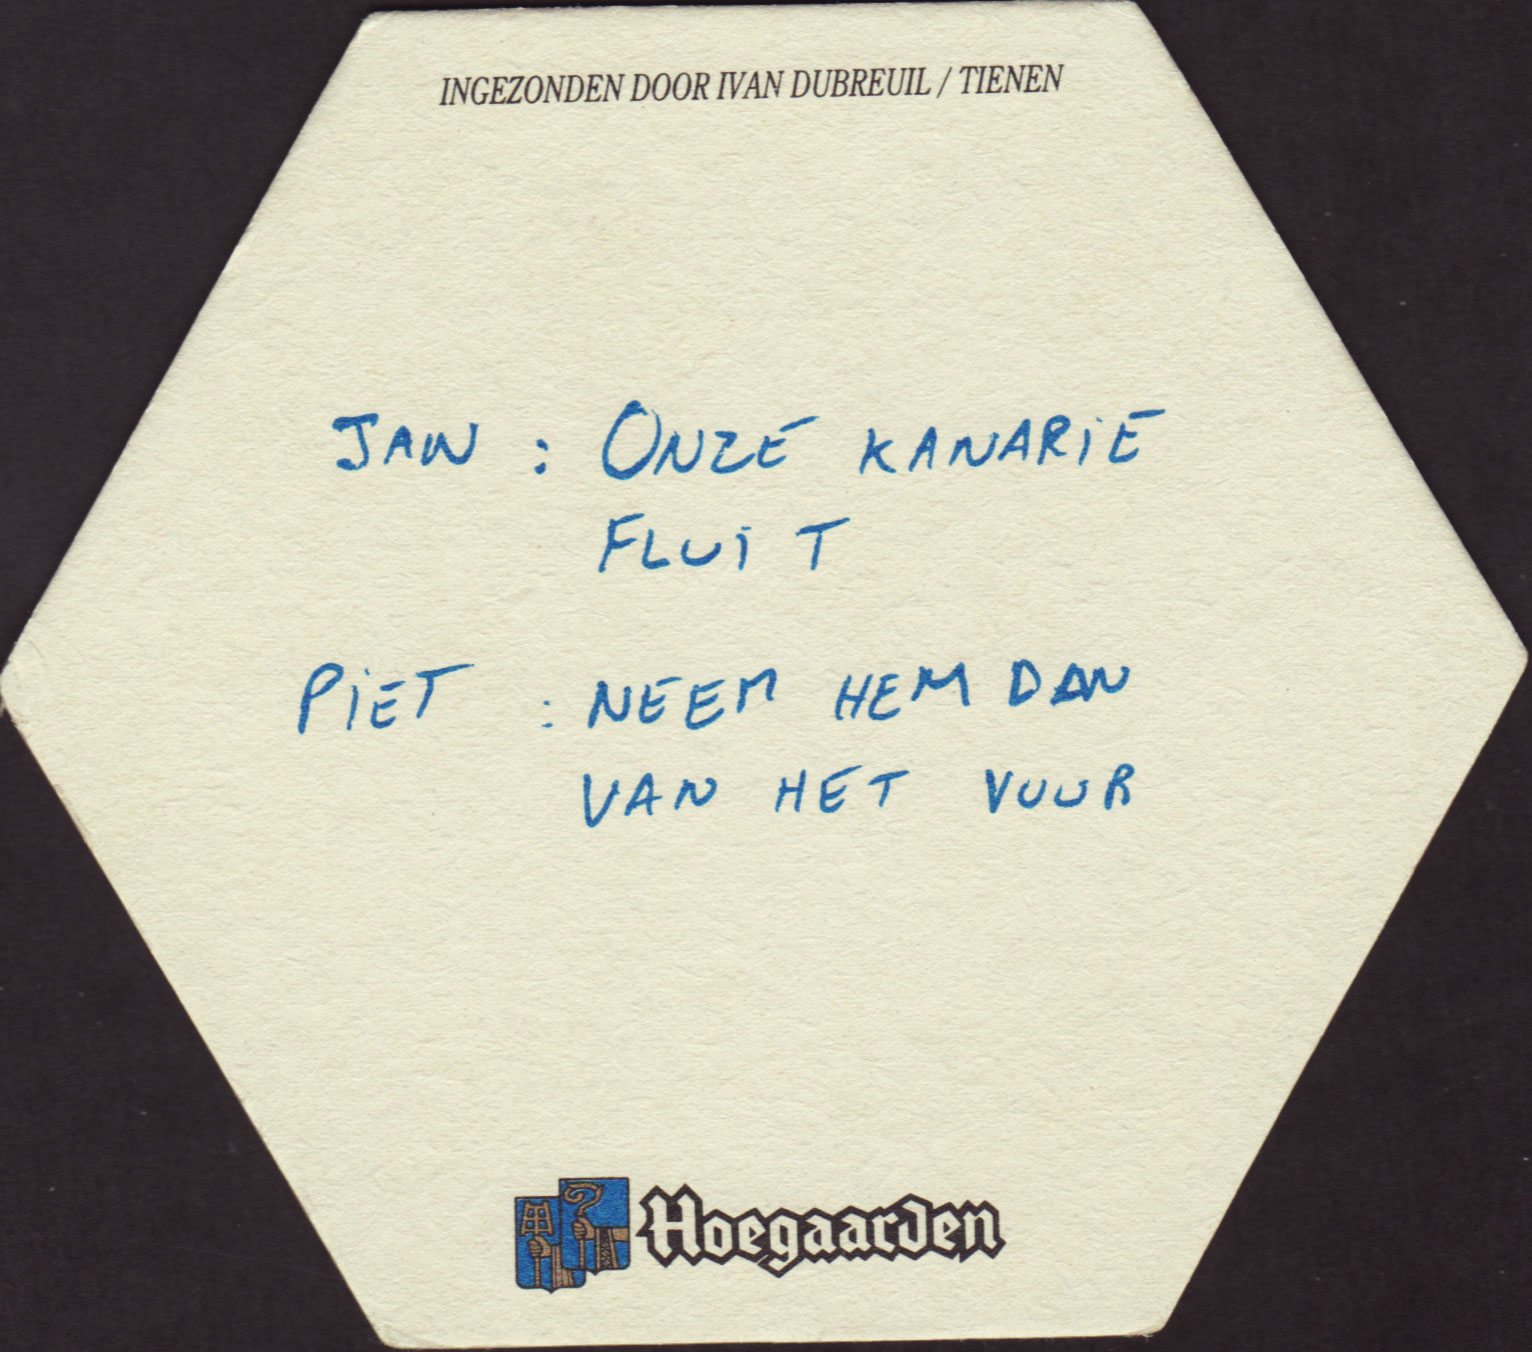 INGEZONDEN DOOR IVAN DUBREUIL / TIENEN
JAN : ONZE KANARIE
FLUIT
PIET : NEEM HEM DAN
VAN HET VUUR
Hoegaarden